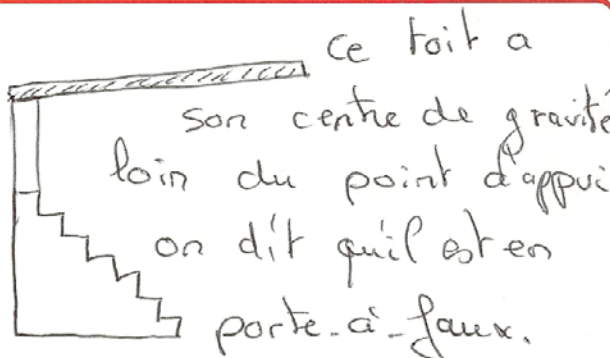 Ce toit a
son centre de gravité
loin du point d'appui
on dit qu'il est en
porte-à-faux.